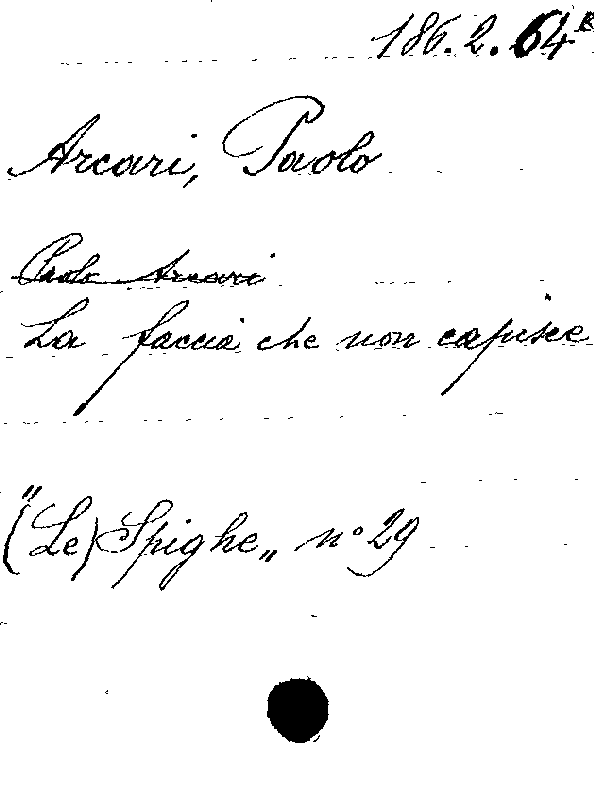 186.2.64 B
Arcari, Paolo
Paolo Arcari
La faccia che non capisce
"(Le) Spighe„ n° 29